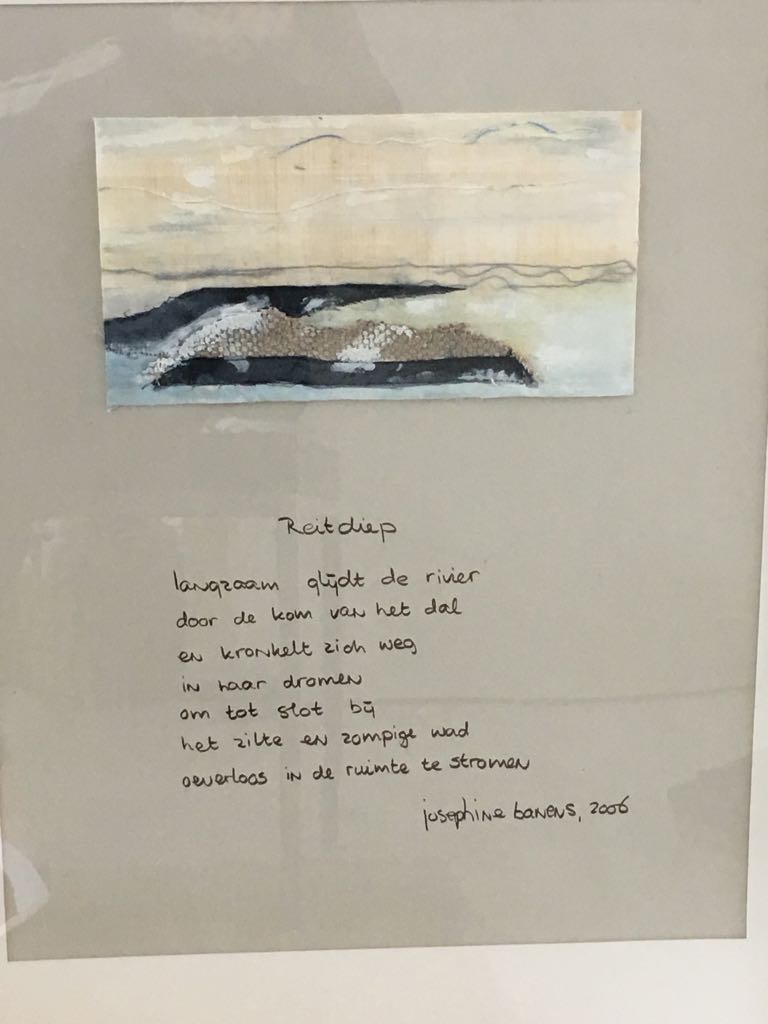 Reitdiep
langzaam glijdt de rivier
door de kom van het dal
en kronkelt zich weg
in haar dromen
om tot slot bij
het zilte en zompige wad
oeverloos in de ruimte te stromen
josephine banens, 2006